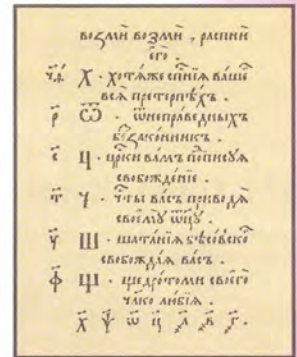 возми́ возми́ , распни́
є҆го̀ .
Х · хотѧ́же сп҃нїѧ ва́шегѡ
всѧ̑ претерпѣ́хъ .
р҃ Ѿ · ѿнепра́ведныхъ
беꙁако́нникъ .
с҃ Ц · цр҃ки ва́мъ по́писꙋѧ
свобожде́нїе .
т҃ Ч · что́бы ва́съ приводѧ̀
своємꙋ̀ ѻ҆тцꙋ̀ .
у҃ Ш · шата́нїѧ бѣсо́вскогѡ
свобожда́ѧ ва́съ .
ф҃ Щ · щедро́томи своєгѡ̀
чл҃ко лю́бїѧ .
х҃ ѱ҃ ѡ҃ ц҃